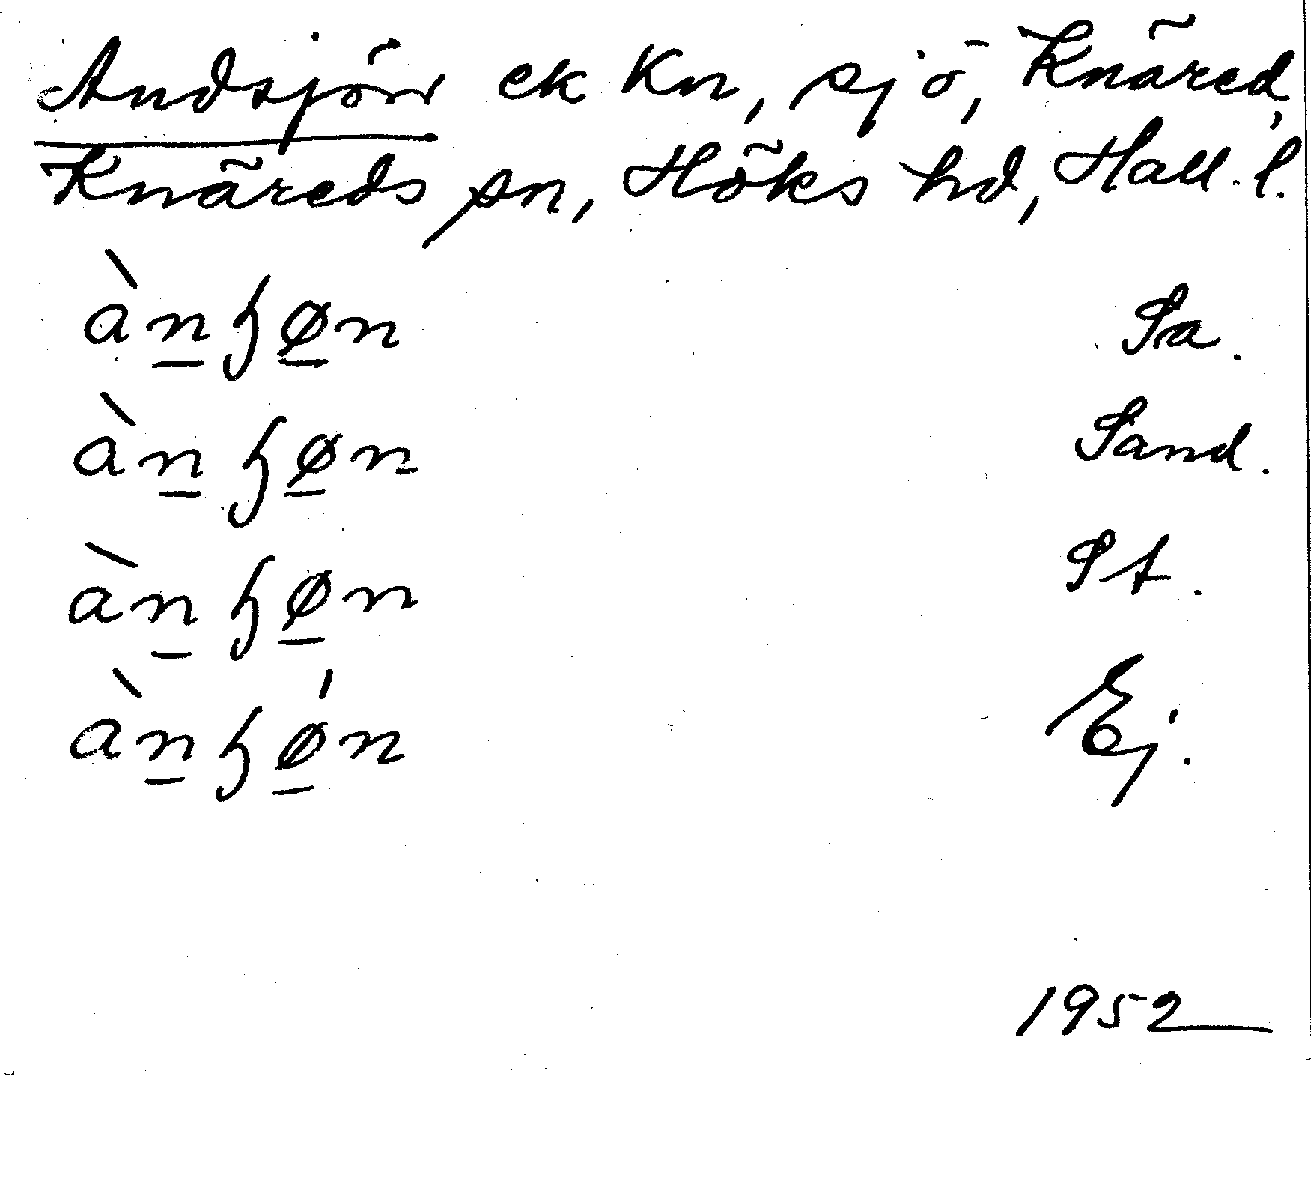 Andsjön ek Kn, sjö, Knäred,
Knäreds sn, Höks hd, Hall. l.
àn̲ɧø̲n Sa.
àn̲ɧø̲n Sand.
àn̲ɧø̲n St.
àn̲ɧǿ̲n Ej.
1952